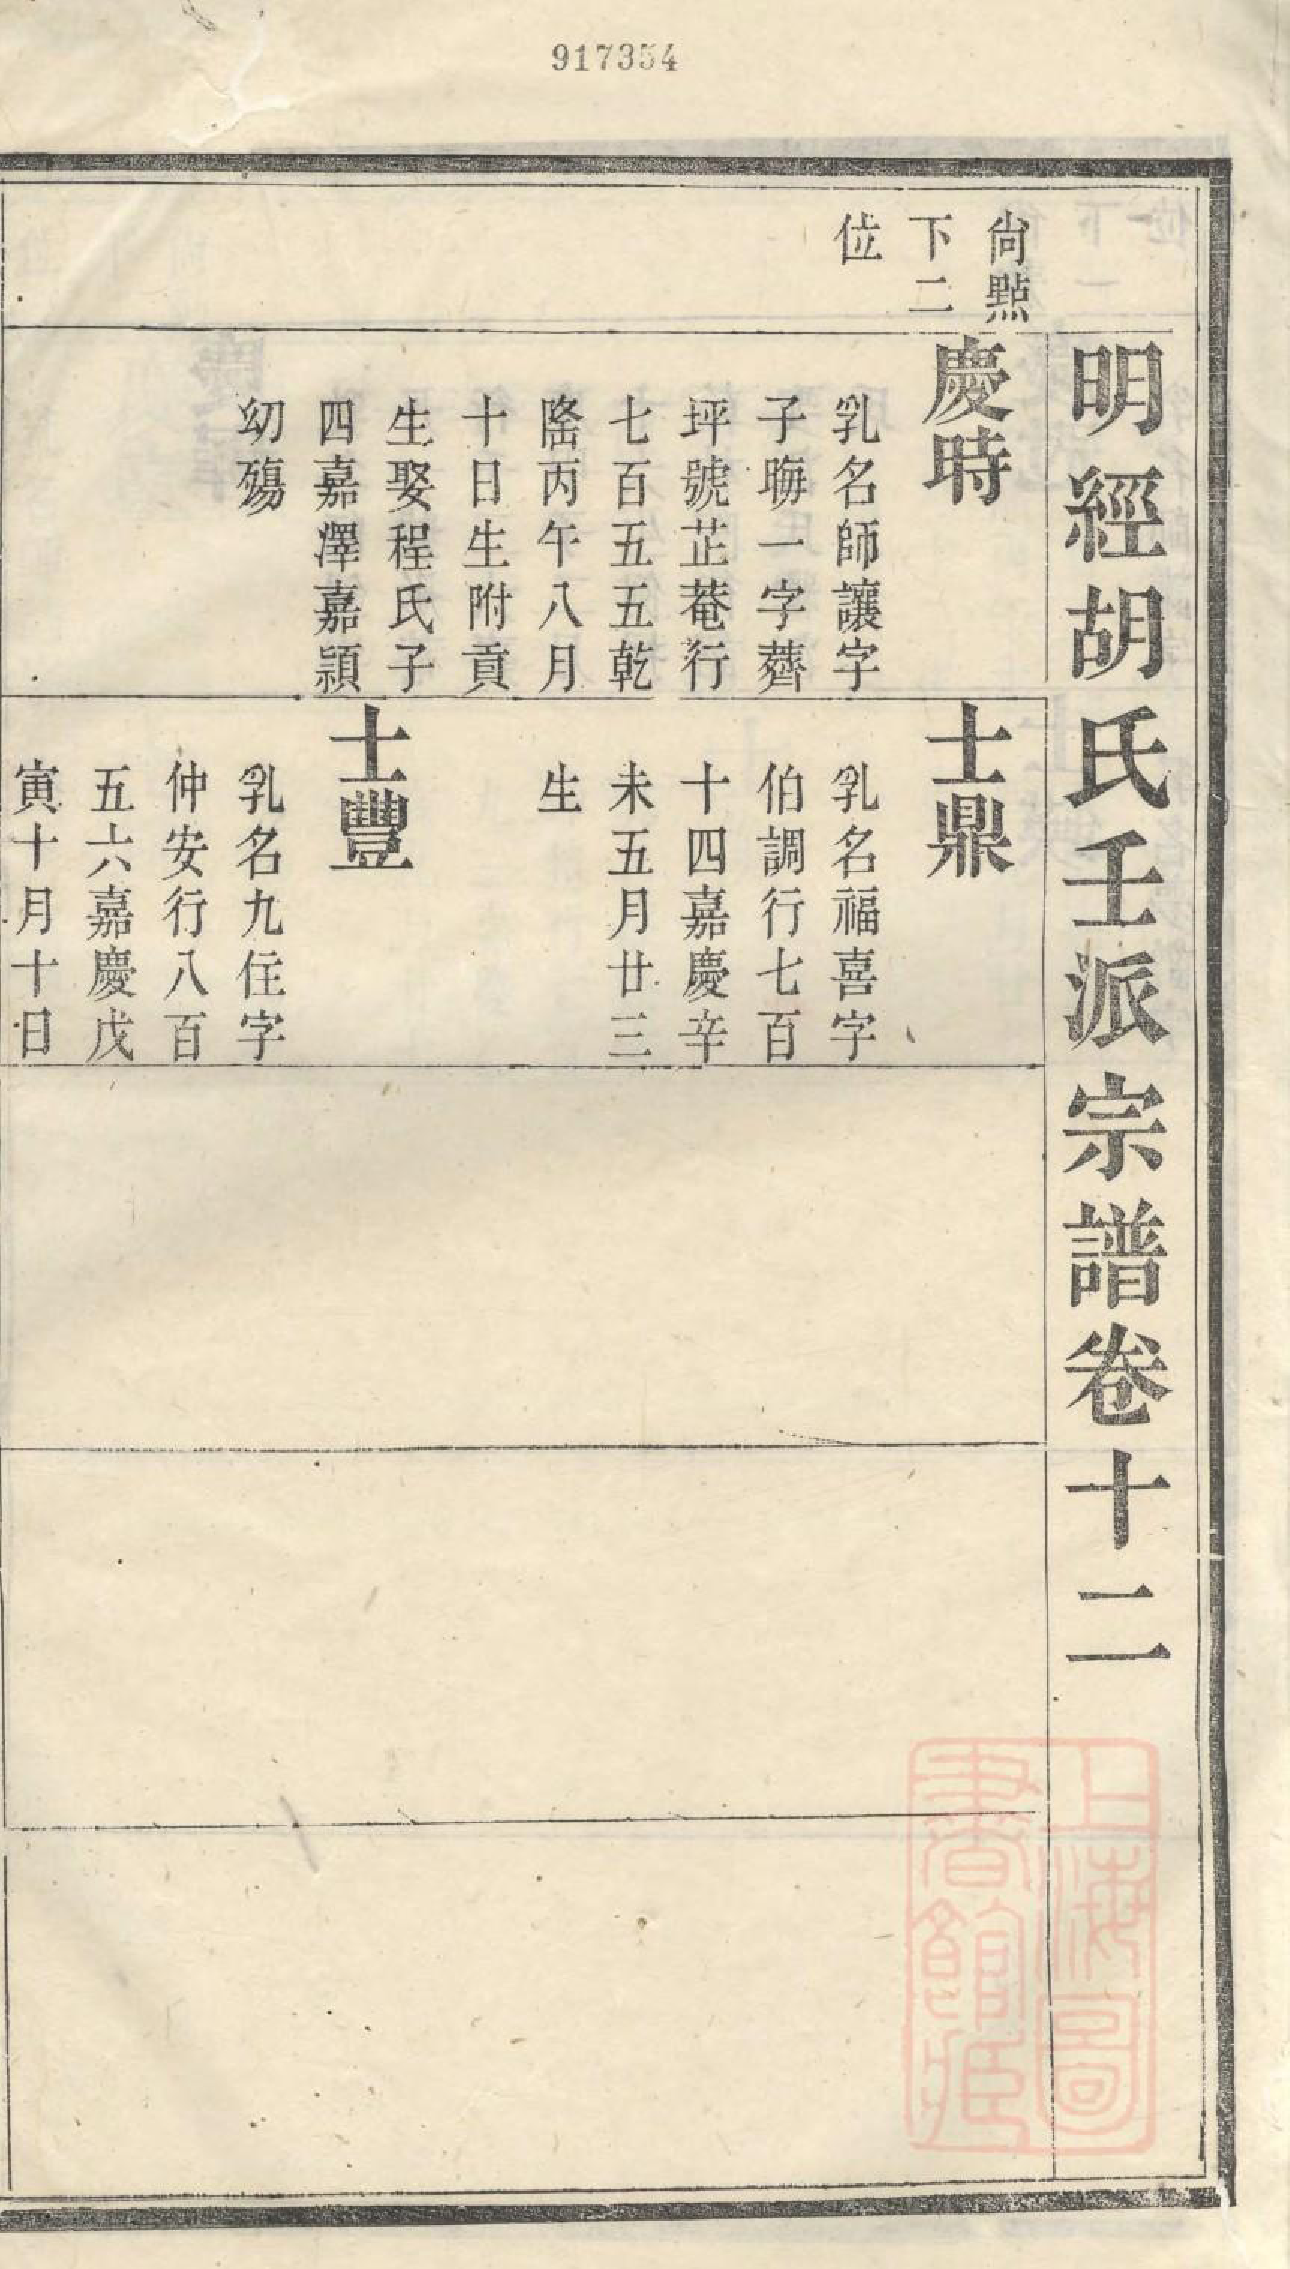 917354
明經胡氏壬派宗譜卷十二
尙㸃
下二
位
慶時
乳名師讓字
子晦一字薺
坪號芷菴行
七百五五乾
隆丙午八月
十日生附貢
生娶程氏子
四嘉澤嘉潁
幼殤
士鼎
乳名福喜字
伯調行七百
十四嘉慶辛
未五月廿三
生
士豐
乳名九住字
仲安行八百
五六嘉慶戊
寅十月十日
上海圖
書館藏